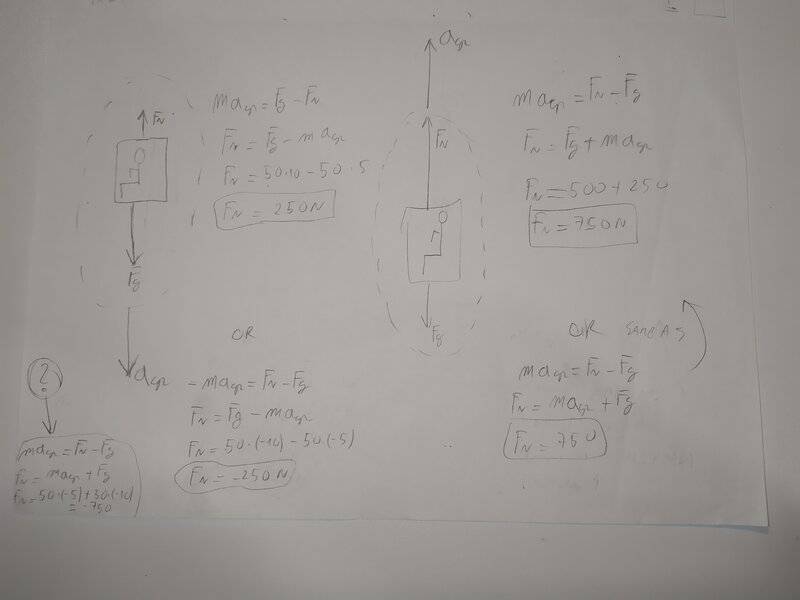 F̄N
F̄g
a gp
ma gp = F̄g - F̄N
F̄N = F̄g - ma gp
F̄N = 50·10 - 50·5
F̄N = 250N
OR
- ma gp = F̄N - F̄g
F̄N = F̄g - ma gp
F̄N = 50·(-10) - 50·(-5)
F̄N = -250N
?
ma gp = F̄N - F̄g
F̄N = ma gp + F̄g
F̄N = 50·(-5) + 50·(-10)
= -750
a gp
F̄N
F̄g
ma gp = F̄N - F̄g
F̄N = F̄g + ma gp
F̄N = 500 + 250
F̄N = 750N
OR SAME AS
ma gp = F̄N - F̄g
F̄N = ma gp + F̄g
F̄N = 750